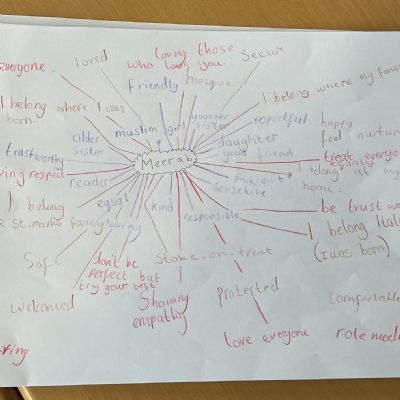 everyone.
loved
loving those
who love you.
secur
friendly
mosque
I belong where I was
born.
I belong where my
muslim
girl
younger
sister
repectful
happy
feel nurtur
older
sister
daughter
good friend
trustworthy
Meerab
treat everyo
equally
ving respec
reader
patient
sensetive
I belong at my
home.
I belong
St. marks family
equal
loving
kind
responsible
be trust wo
I belong Ital
(I was born)
Safe
don't be
perfect but
try your best
Stoke-on-trent
welcomed
Showing
empathy
protected
comfortable
love everyone
role mode
ring